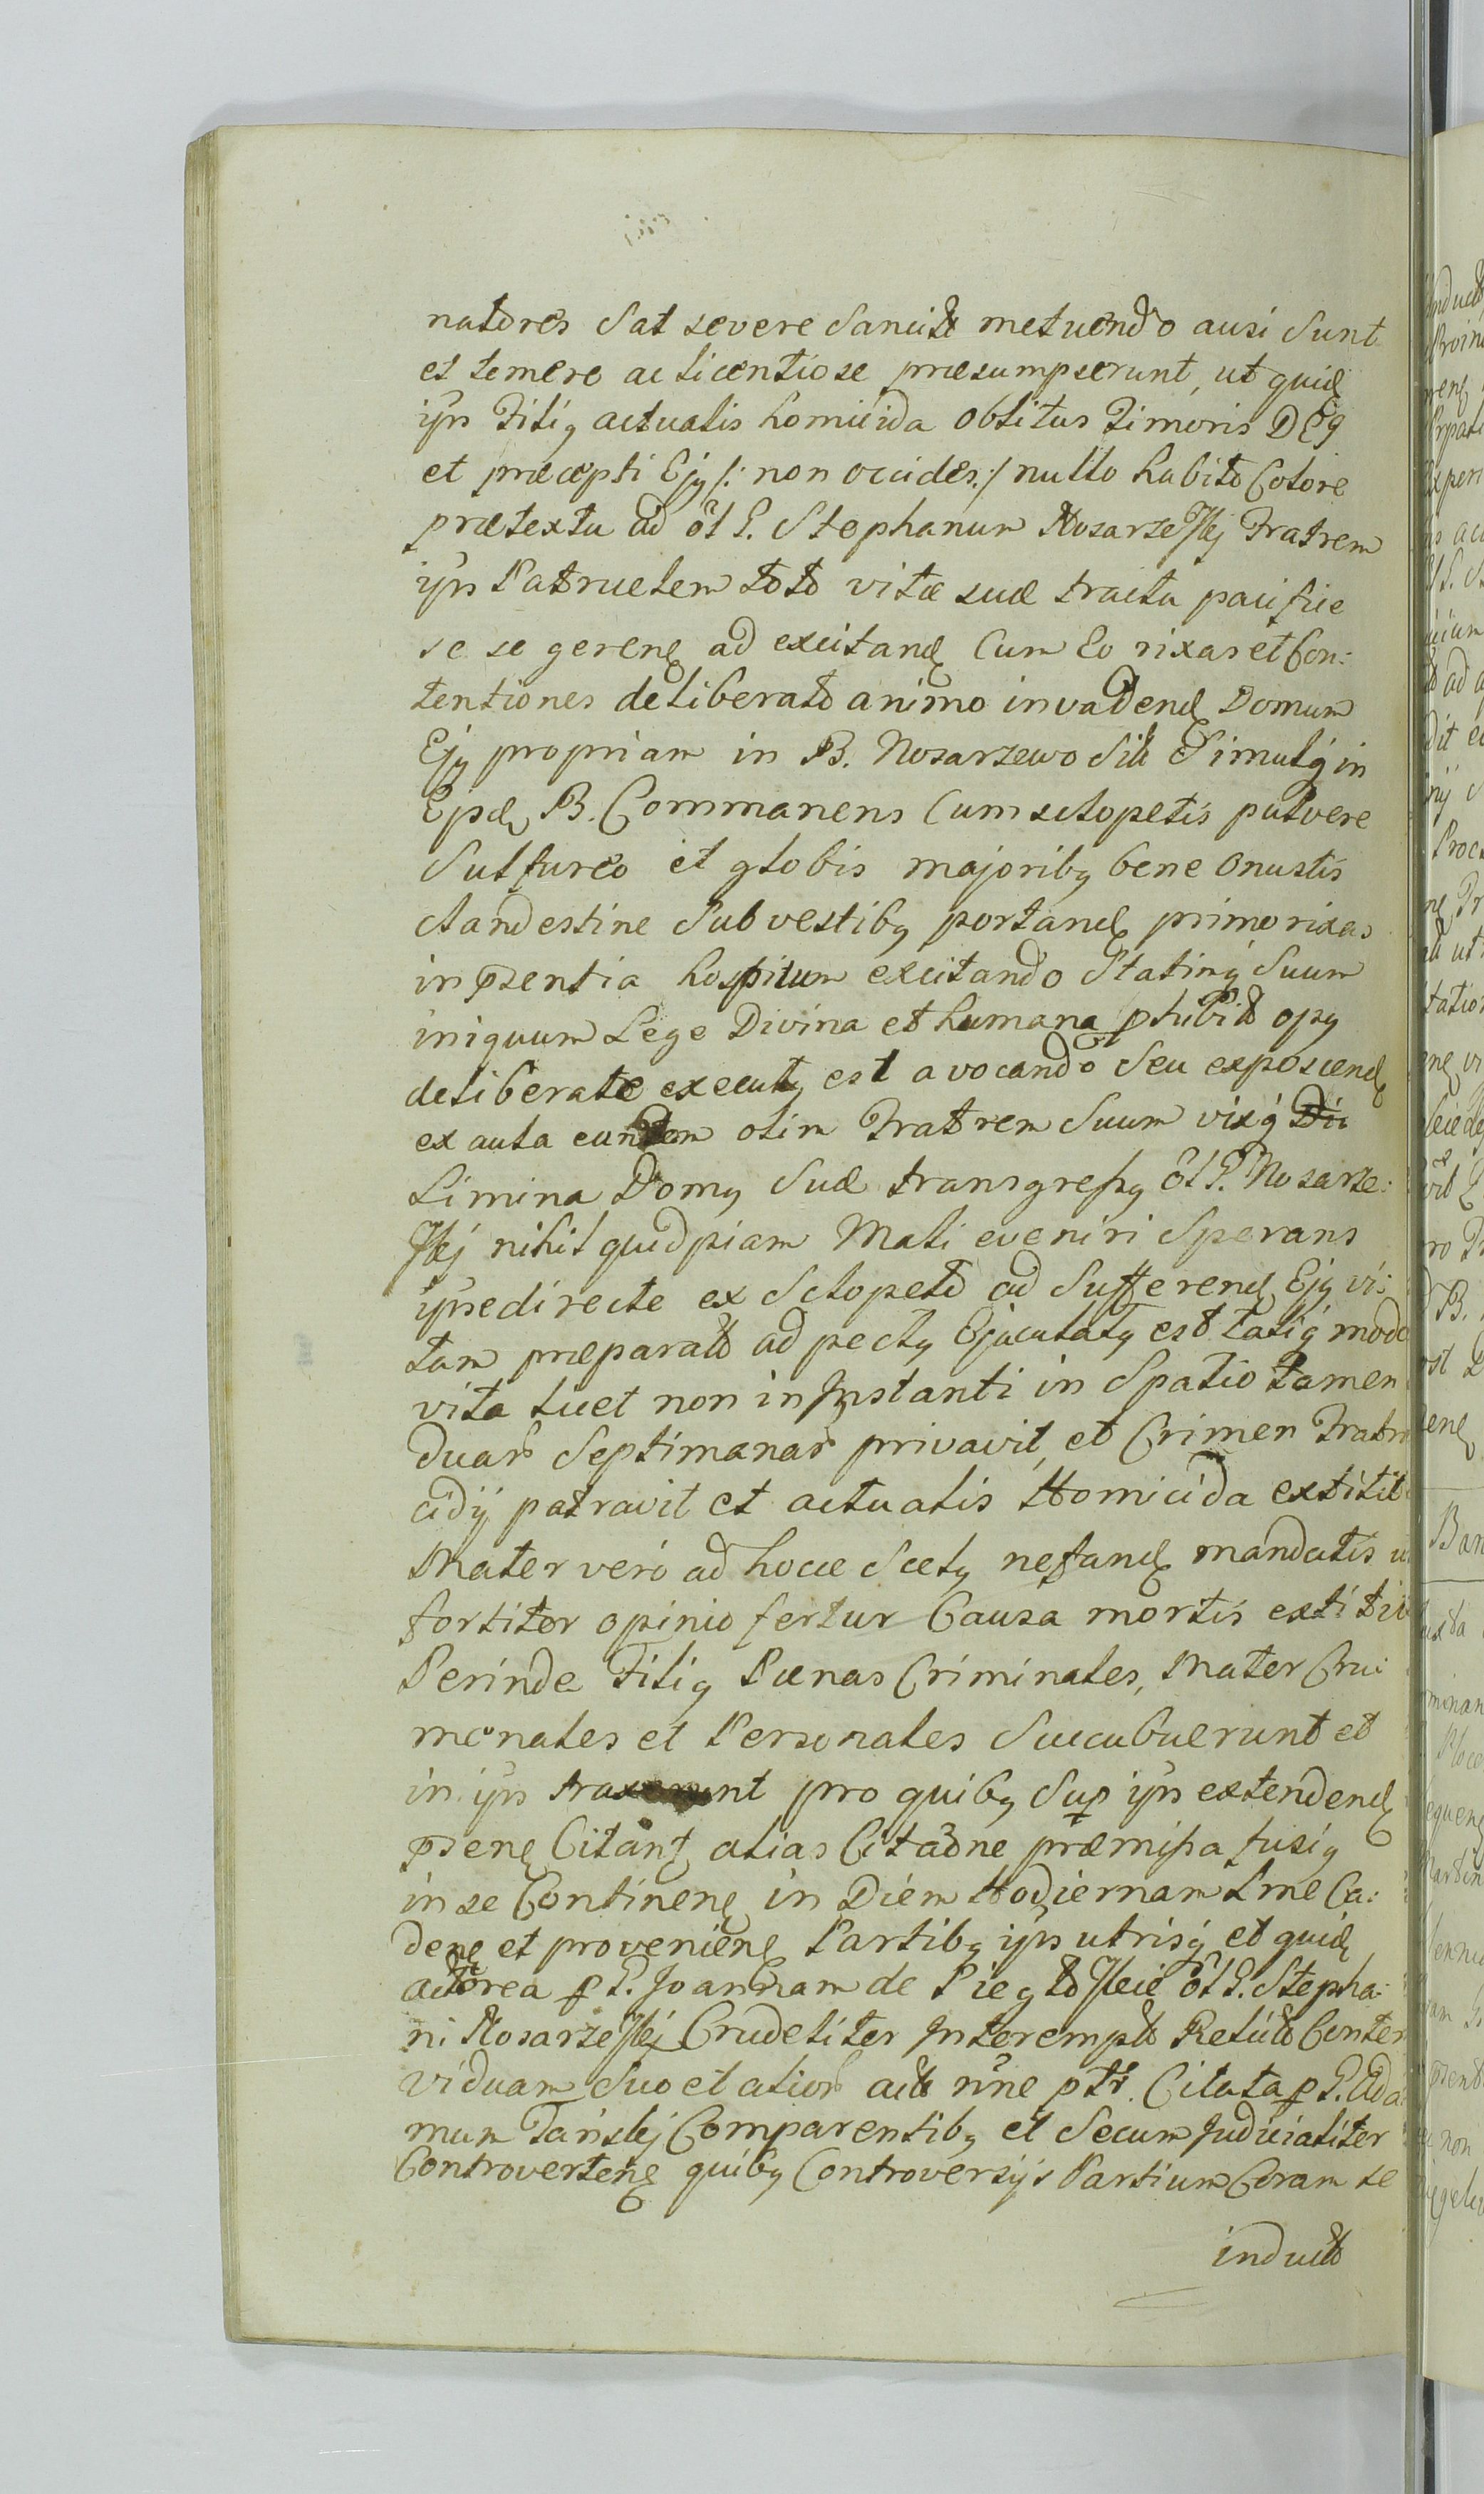 natores Sat severe Sancita metuendo ausi Sunt
et temere ac licentiose præsumpserunt, ut quid
ips Filiq actualis homicida oblitus Timoris DEI
et præcepti Ejq /: non occides :/ nullo habito Colore
prætextu ad ol G. Stephanum NosarzeSkj Fratrem
ips Patruelem toto vitæ suæ tractu pacifice
se se geren ad excitand Cum Eo rixas et Con:
tentiones deliberato animo invadend Domum
Ejq propriam in B. Nosarzewo Sit Simulq in
Ejsd B. Commanens Cum sclopetis pulvere
Sulfureo et globis majoribq bene onustis
clandestine Sub vestibq portand primo rixas
in psentia hospitum excitando Statimq Suum
iniquum Lege Divina et humana phibit opq
deliberate executq est avocando Seu exposcend
ex aula eundem olim Fratrem Suum vixq
Limina Domq Suæ transgressq ol G. Nosarze:
Skj nihil quidpiam Mali eveniri Sperans
ipse directe ex Sclopeto ad Sufferend Ejq vi:
tam præparato ad pectq Ejaculatq est taliq modo
vita licet non in Instanti in Spatio tamen
duar Septimanar privavit, et Crimen Fratri
cidij patravit et actualis Homicida extitit
Mater vero ad hocce Scelq nefand mandatis
fortiter opinio fertur Causa mortis extitit
Perinde Filiq Pænas Criminales, Mater Cru:
menales et Personales Succubuerunt et
in ips traxerunt pro quibq Sup ips extendend
psen Citant alias Citaone præmissa fusiq
in se Continen in Diem Hodiernam Lme Ca:
den et provenien Partibq ips utrisq et quid
actorea p G. Joannam de Pieg ol G. Stepha:
ni NosarzeSkj Crudeliter Interempt Relict Conter
viduam Suo et alior act nne ptr. Citata p G. Ada
mum Tanskj Comparentibq et Secum Judicialiter
Controverten quibq Controversijs Partium Coram se
induct